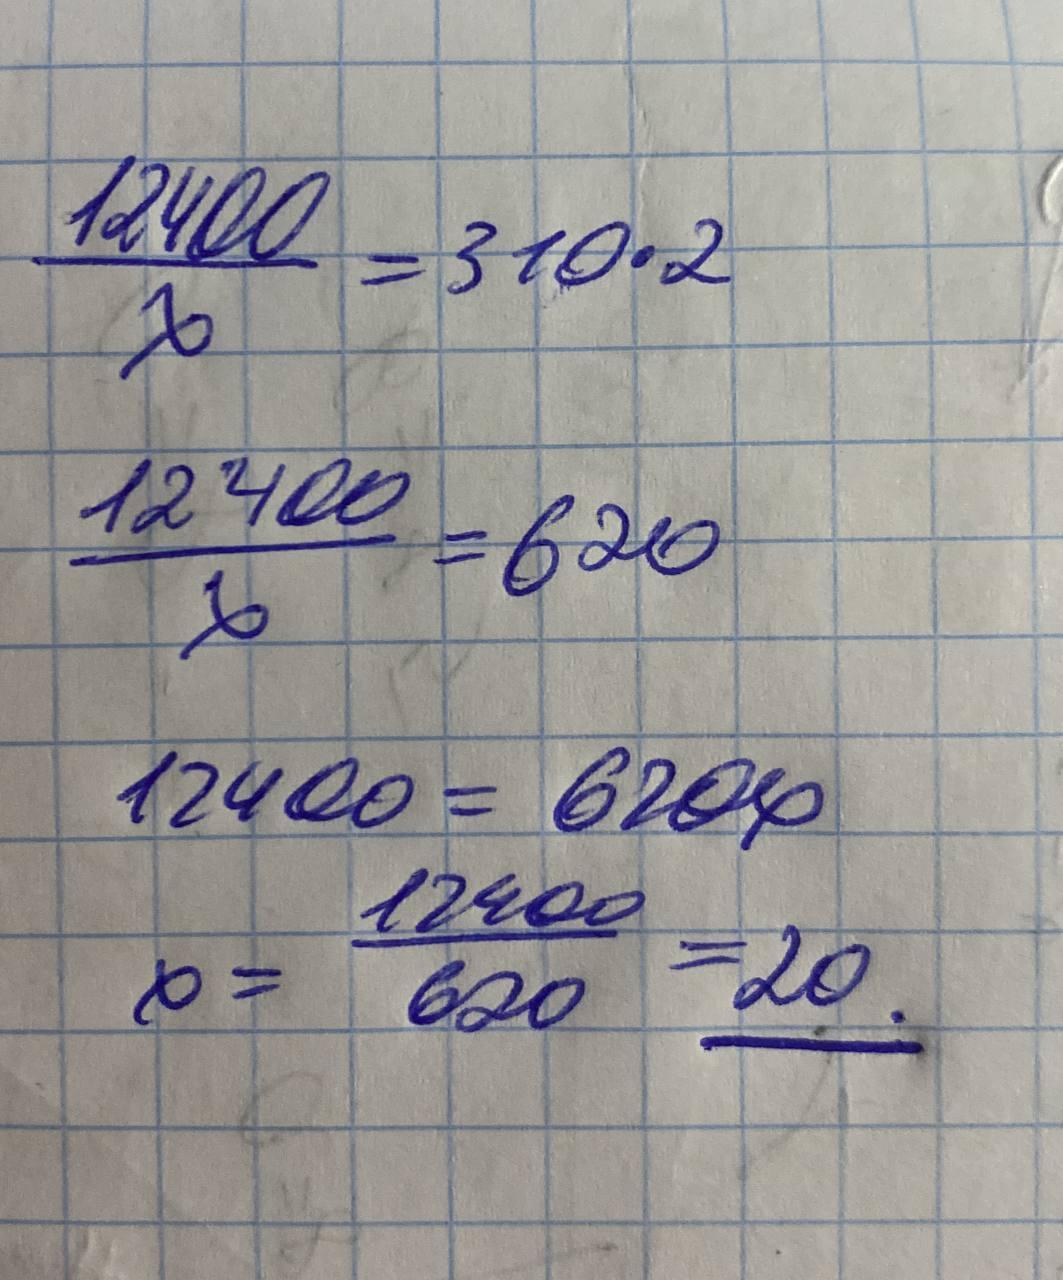 12400/x = 310·2
12400/x = 620
12400 = 620x
x = 12400/620 = 20.